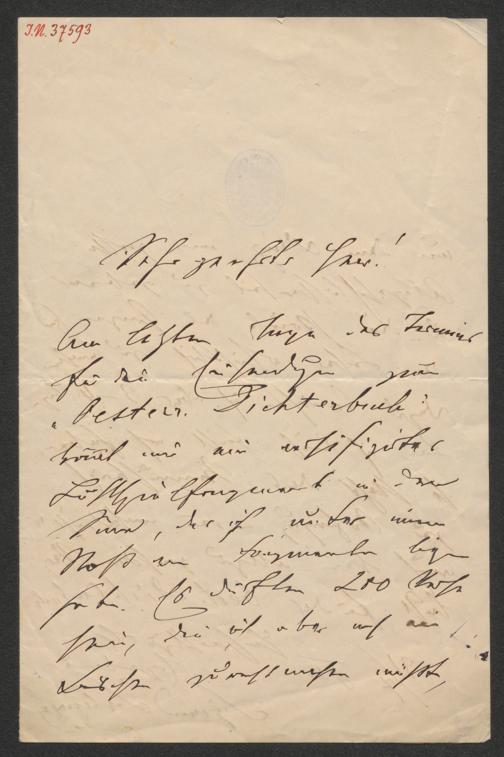 I.N. 37593
Sehr geehrter Herr!
Am letzten Tage des Termins
für die Einsendungen zum
"Oesterr. Dichterbuch"
kömt mir ein versifizirtes
Lustspielfragment in den
Sinn, das ich unter einem
Stoß von Fragmenten liegen
habe. Es dürften 200 Verse
sein, die ich aber noch ein
bischen zurechtmachen müßte,